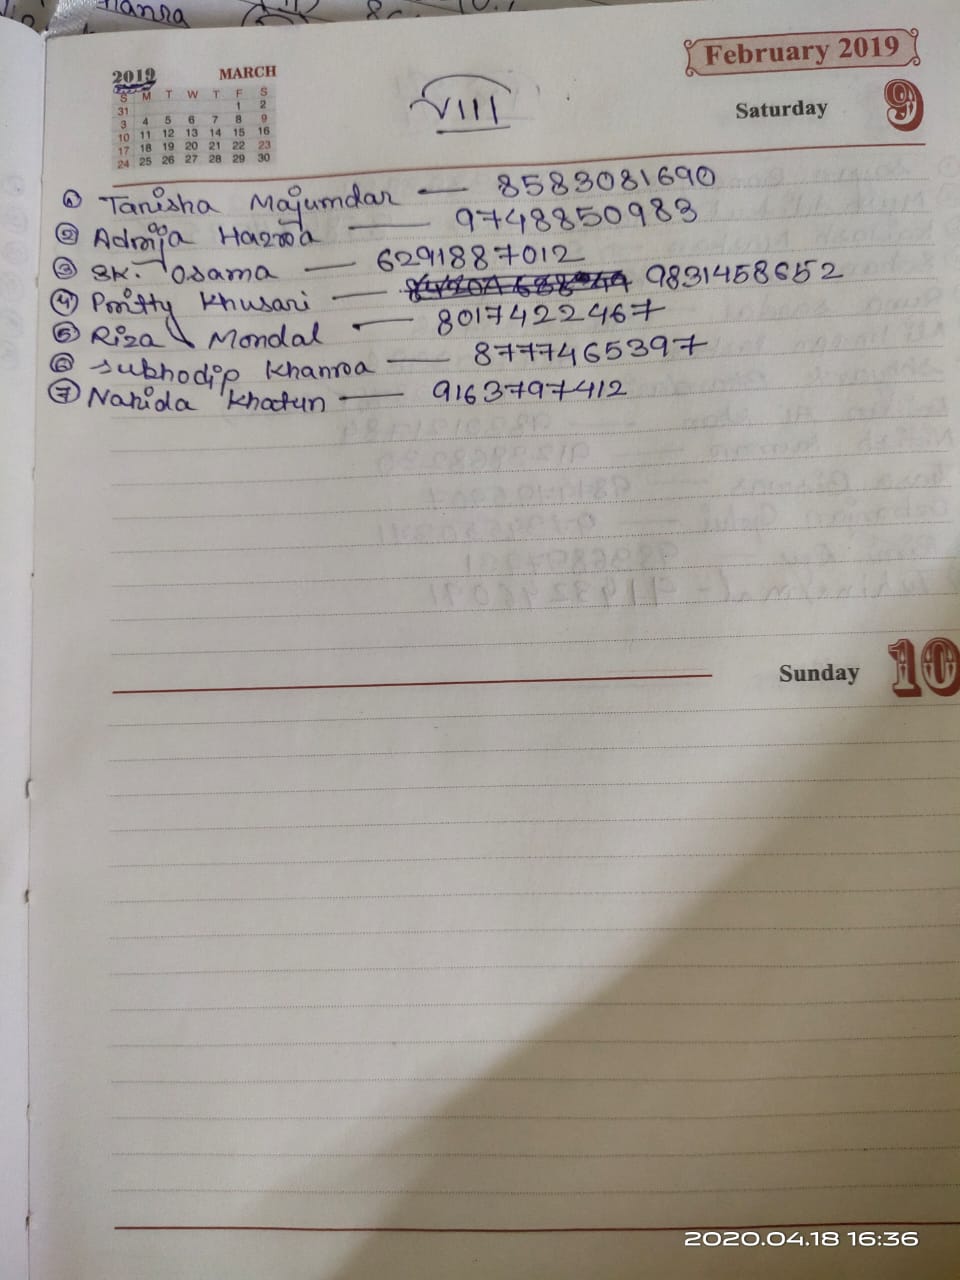 February 2019
2019 MARCH
S M T W T F S
31 1 2
3 4 5 6 7 8 9
10 11 12 13 14 15 16
17 18 19 20 21 22 23
24 25 26 27 28 29 30
VIII
Saturday 9
① Tanisha Majumdar — 8583081690
② Adrija Hazra — 9748850983
③ SK. Osama — 6291887012
④ Pritty Khusari — 9831458652
⑤ Riza Mondal — 8017422467
⑥ Subhodip Khanra — 8777465397
⑦ Nahida Khatun — 9163797412
Sunday 10
2020.04.18 16:36